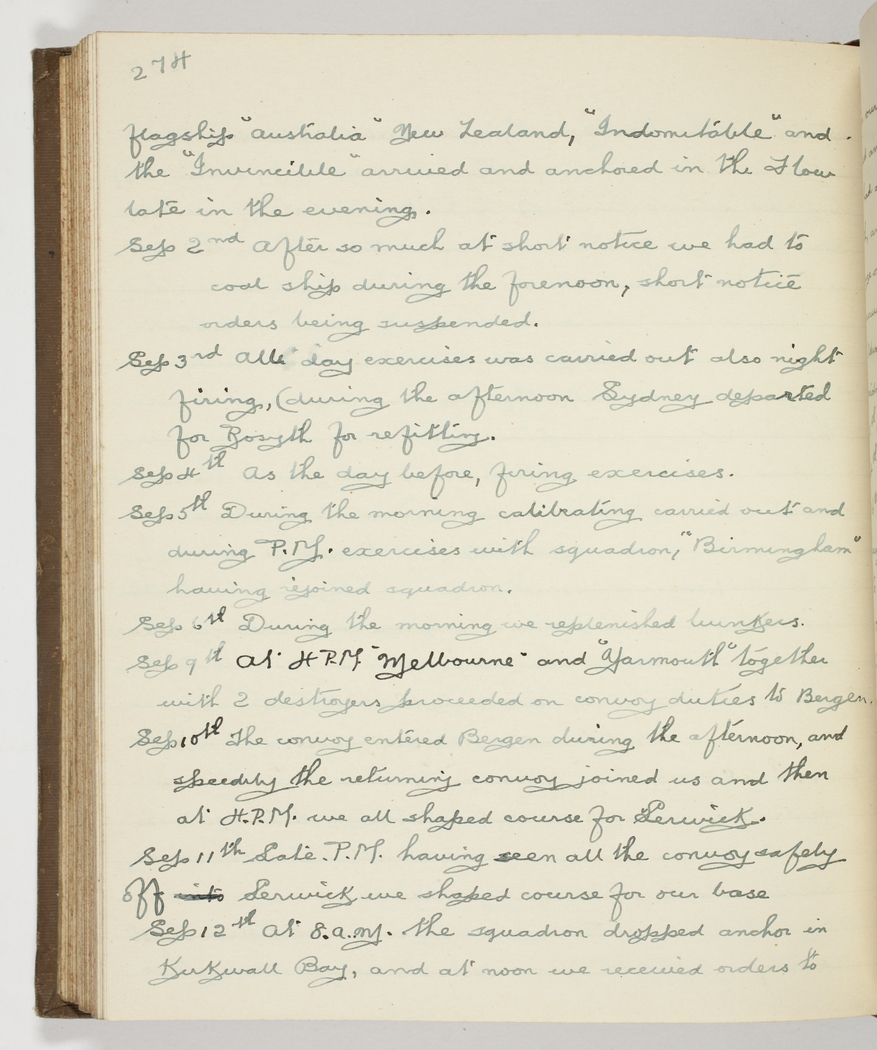 274
flagship "Australia" New Zealand, "Indomitable" and
the "Invincible" arrived and anchored in the Flow
late in the evening.
Sep 2nd After so much at short notice we had to
coal ship during the forenoon, short notice
orders being suspended.
Sep 3rd All day exercises was carried out also night
firing, (during the afternoon Sydney departed
for Rosyth for refitting.
Sep 4th As the day before, firing exercises.
Sep 5th During the morning calibrating carried out and
during P.M. exercises with squadron, "Birmingham"
having rejoined squadron.
Sep 6th During the morning we replenished bunkers.
Sep 9th At 4 P.M. "Melbourne" and "Yarmouth" together
with 2 destroyers proceeded on convoy duties to Bergen.
Sep 10th The convoy entered Bergen during the afternoon, and
speedily the returning convoy joined us and then
at 4.P.M. we all shaped course for Lerwick.
Sep 11th Late P.M. having seen all the convoy safely
off into Lerwick we shaped course for our base
Sep 12th At 8.a.m. the squadron dropped anchor in
Kirkwall Bay, and at noon we received orders to